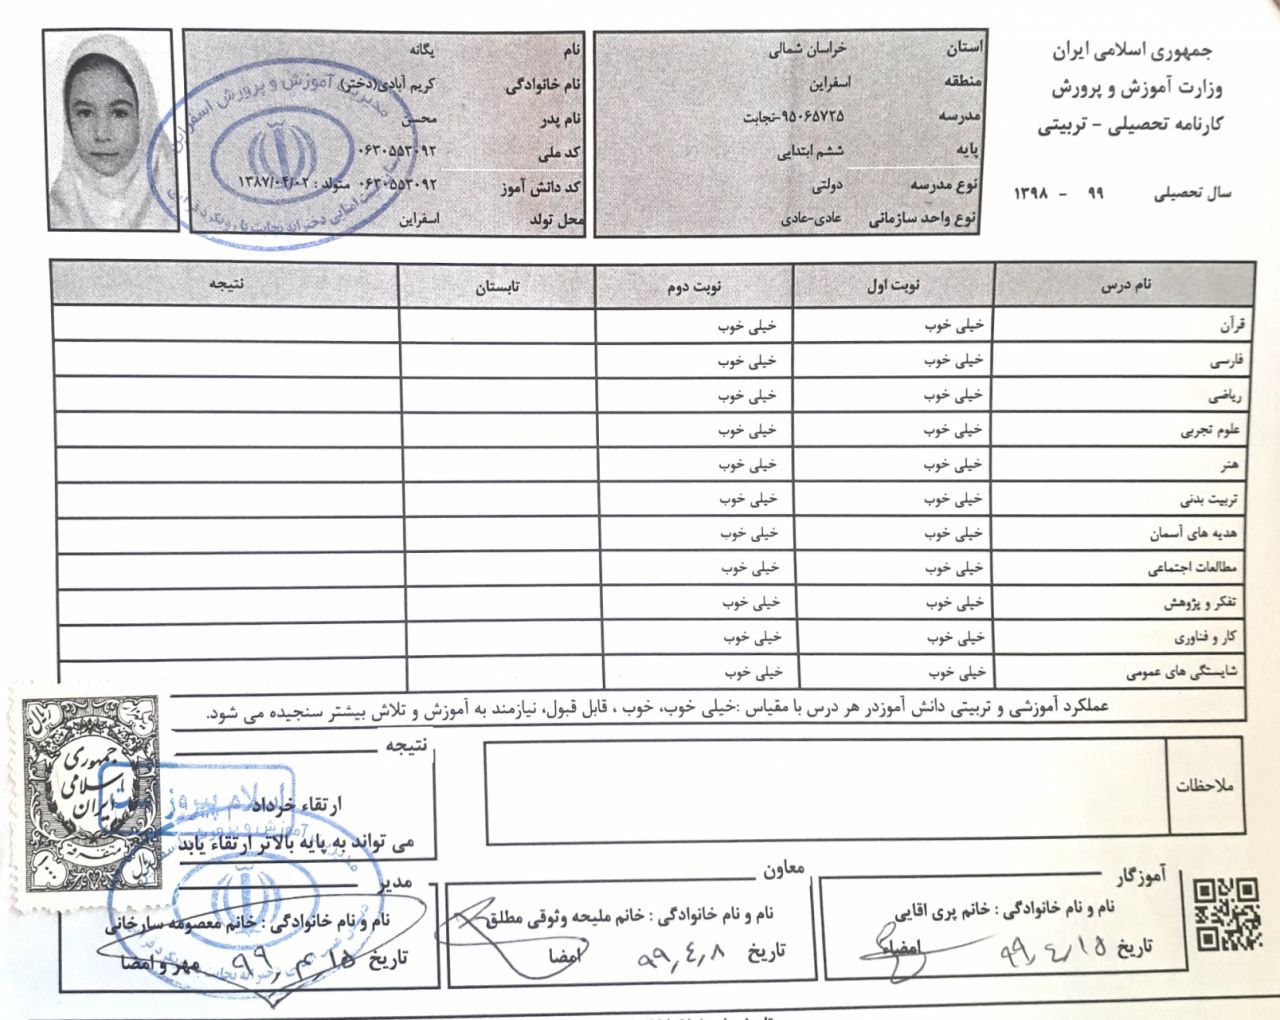 جمهوری اسلامی ایران
وزارت آموزش و پرورش
کارنامه تحصیلی - تربیتی
سال تحصیلی ۹۹ - ۱۳۹۸
استان خراسان شمالی
منطقه اسفراین
مدرسه ۹۵۰۶۵۷۲۵-نجابت
پایه ششم ابتدایی
نوع مدرسه دولتی
نوع واحد سازمانی عادی-عادی
نام یگانه
نام خانوادگی کریم آبادی(دختر)
نام پدر محسن
کد ملی ۰۶۳۰۵۵۳۰۹۲
کد دانش آموز ۰۶۳۰۵۵۳۰۹۲ متولد : ۱۳۸۷/۰۴/۰۲
محل تولد اسفراین
مدیریت آموزش و پرورش اسفراین
نام درس نوبت اول نوبت دوم تابستان نتیجه
قرآن خیلی خوب خیلی خوب
فارسی خیلی خوب خیلی خوب
ریاضی خیلی خوب خیلی خوب
علوم تجربی خیلی خوب خیلی خوب
هنر خیلی خوب خیلی خوب
تربیت بدنی خیلی خوب خیلی خوب
هدیه های آسمان خیلی خوب خیلی خوب
مطالعات اجتماعی خیلی خوب خیلی خوب
تفکر و پژوهش خیلی خوب خیلی خوب
کار و فناوری خیلی خوب خیلی خوب
شایستگی های عمومی خیلی خوب خیلی خوب
عملکرد آموزشی و تربیتی دانش آموزدر هر درس با مقیاس :خیلی خوب، خوب ، قابل قبول، نیازمند به آموزش و تلاش بیشتر سنجیده می شود.
ملاحظات
نتیجه
ارتقاء خرداد
می تواند به پایه بالاتر ارتقاء یابد
جمهوری
اسلامی
ایران
متفرقه
ریال
اسلام پیروز است
آموزگار
نام و نام خانوادگی : خانم پری اقایی
تاریخ ۹۹,۴,۱۵ امضاء
معاون
نام و نام خانوادگی : خانم ملیحه وثوقی مطلق
تاریخ ۹۹,۴,۸ امضا
مدیر
نام و نام خانوادگی : خانم معصومه سارخانی
تاریخ ۹۹,۴,۱۵ مهر و امضا